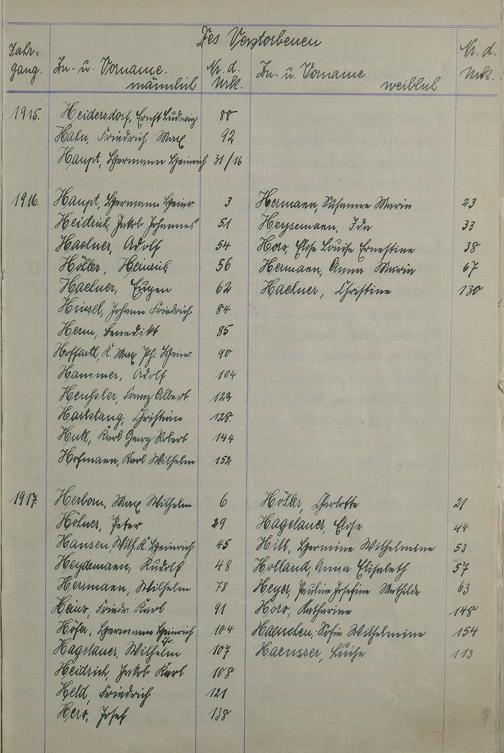 Des Verstorbenen
Jahrgang. Zu- u. Vorname. männlich Nr. d. Urk. Zu- u. Vorname weiblich Nr. d. Urk.
1915. Heidersdorf, Ernst Ludwig 88
Hahn, Friedrich Max 92
Haupt, Hermann Heinrich 31/16
1916. Haupt, Hermann Heinr. 3 Hermann, Susanne Maria 23
Heidrich, Jakob Johannes 51 Heysemann, Ida 33
Haelner, Adolf 54 Horo, Elise Louise Ernestine 38
Höller, Heinrich 56 Hermann, Anna Maria 67
Haelner, Eugen 62 Haelner, Christine 130
Hinsel, Johann Friedrich 84
Herm, Benedikt 85
K. Max Ph. Heinr. 90
Hammer, Adolf 104
Franz Albert 123
Hartstang, Christian 128
Karl Georg Robert 144
Hofmann, Karl Wilhelm 152
1917. Herborn, Max Wilhelm 6 Höller, Charlotte 21
Hölner, Peter 29 Hagelauer, Elise 44
Hansen, Wilh. K. Heinrich 45 Hill, Hermine Wilhelmine 53
Heydemann, Rudolf 48 Holland, Anna Elisabeth 57
Herrmann, Wilhelm 78 Heyer, Pauline Josefine Mathilde 63
Friedr. Karl 91 Horo, Katharine 148
Höfer, Hermann Heinrich 104 Haenchen, Sofie Wilhelmine 154
Hagelauer, Wilhelm 107 Haeusser, Luise 113
Heidrich, Jakob Karl 108
Held, Friedrich 121
Josef 138